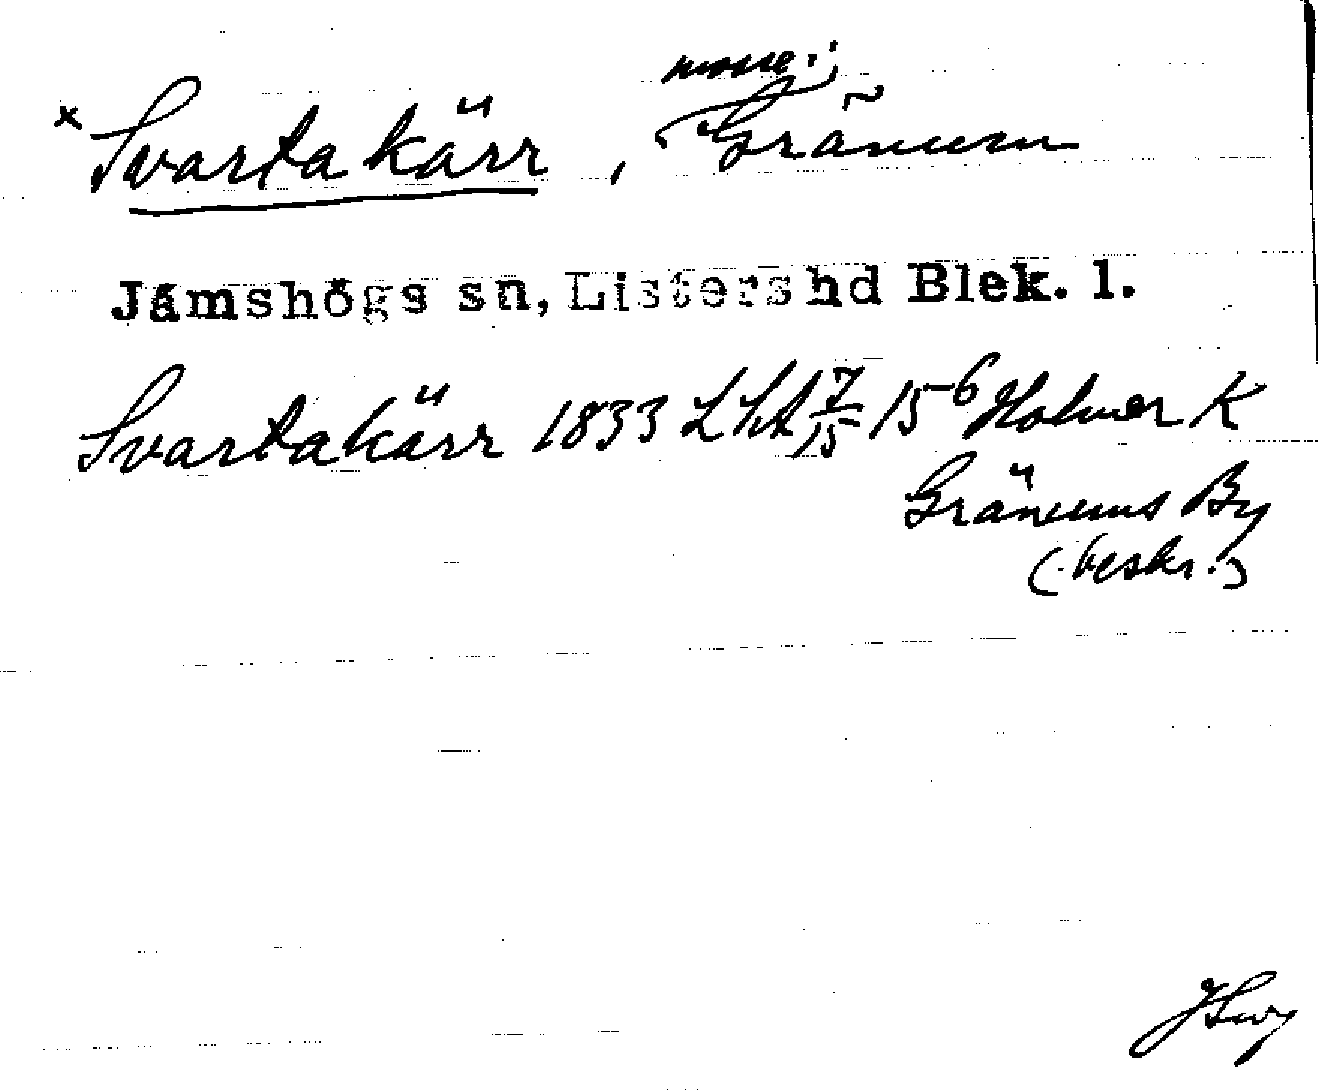 mosse i
× Svartakärr, Gränum
Jämshögs sn, Listers hd Blek. l.
Svartakärr 1833 LSA 7/15 15⁶ Holmer K
Gränums By
(beskr.)